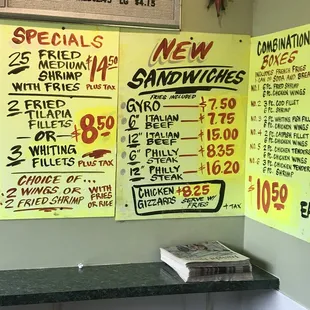 SPECIALS
25 FRIED
MEDIUM
SHRIMP
WITH FRIES
$14.50
PLUS TAX
2 FRIED
TILAPIA
FILLETS
OR
3 WHITING
FILLETS
$8.50
PLUS TAX
CHOICE OF...
2 WINGS OR
2 FRIED SHRIMP
WITH
FRIES
OR RICE
NEW
SANDWICHES
FRIES INCLUDED
GYRO $7.50
6" ITALIAN BEEF $7.75
12" ITALIAN BEEF $15.00
6" PHILLY STEAK $8.35
12" PHILLY STEAK $16.20
CHICKEN $8.25
GIZZARDS SERVE W/ FRIES
+TAX
COMBINATION
BOXES
INCLUDES FRENCH FRIES
OF SODA AND BREAD
PC. FRIED SHRIMP
PC. CHICKEN WINGS
PC. COD FILLET
PC. SHRIMP
PC. CHICKEN WINGS
PC. CHICKEN TENDERS
PC. CHICKEN WINGS
PC. SHRIMP
$10.50
EA